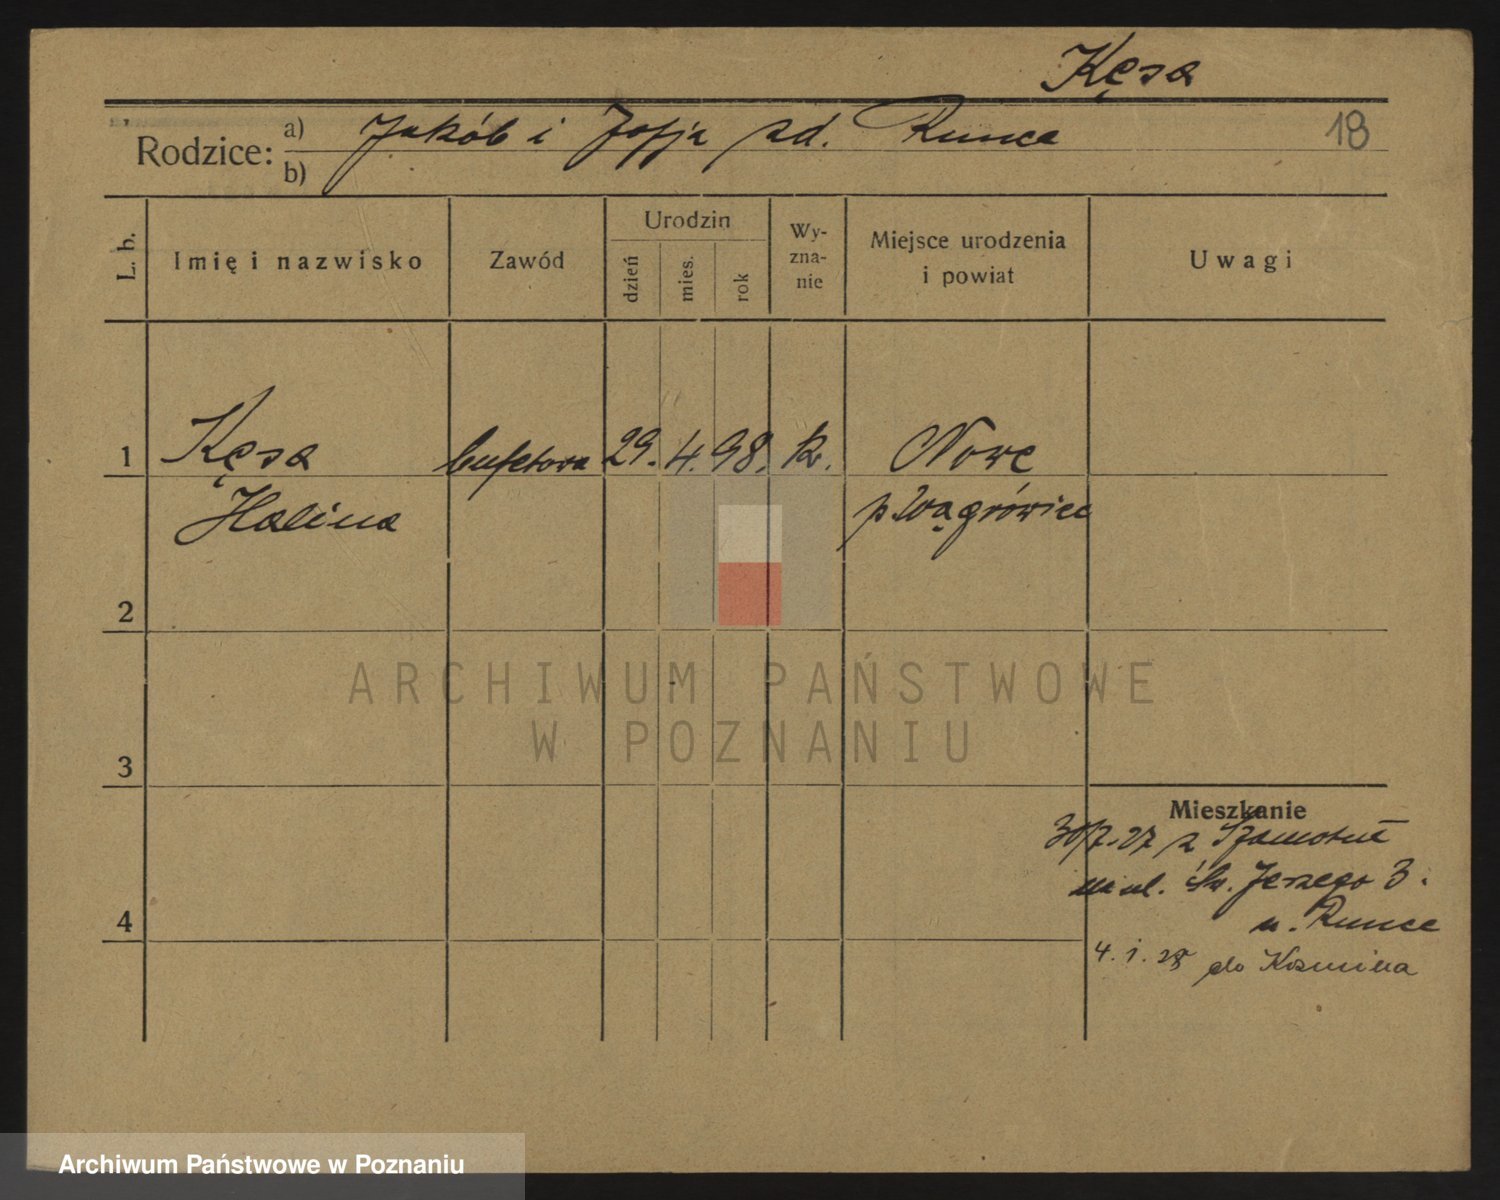 Kęsa
18
Rodzice: a) Jakób i Zofja zd. Runce
b)
L. b. Imię i nazwisko Zawód Urodzin dzień mies. rok Wy-zna-nie Miejsce urodzenia i powiat Uwagi
1 Kęsa bufetowa 29. 4. 98. k. Nowe
Halina p. Wągrówiec
2
ARCHIWUM PAŃSTWOWE
W POZNANIU
3
Mieszkanie
30/7.27 z Szamotuł
na ul. Św. Jerzego 3.
u. Runce
4
4. 1. 28 do Koźmina
Archiwum Państwowe w Poznaniu